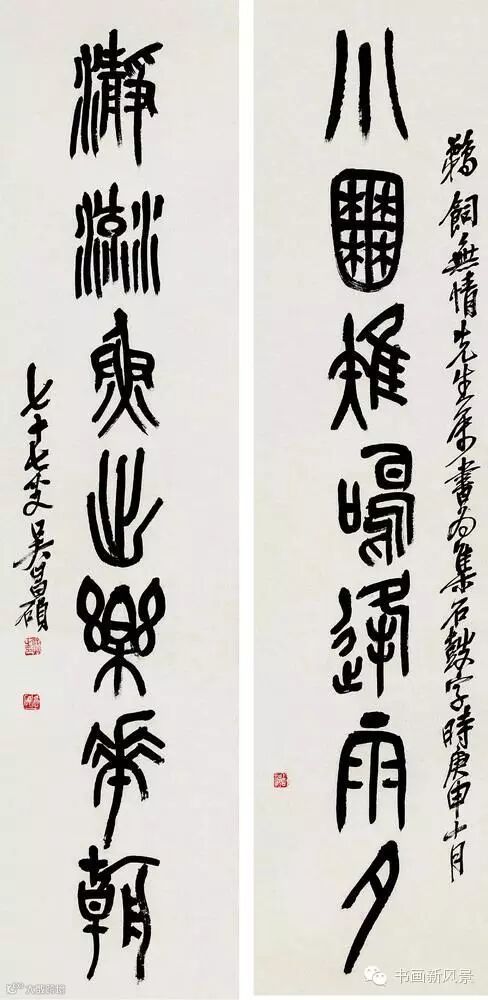 小囿雉鳴逢雨夕
飼無情先生屬書為集石鼓字時庚申十月
瀞流魚出樂華朝
七十七叟吳昌碩
书画新风景
大成跨境